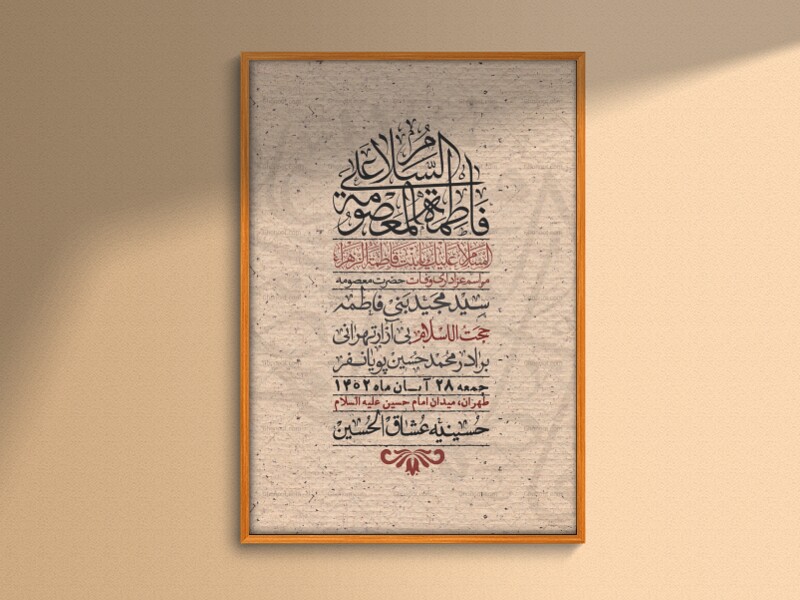 السلام على
فاطمة المعصومة
السلام عليك يا بنت فاطمة الزهراء
مراسم عزاداری وفات حضرت معصومه
سید مجید بنی فاطمه
حجت الاسلام بی آزار تهرانی
برادر محمد حسین پویانفر
جمعه ۲۸ آبان ماه ۱۴۰۲
طهران، میدان امام حسین علیه السلام
حسینیه عشاق الحسین